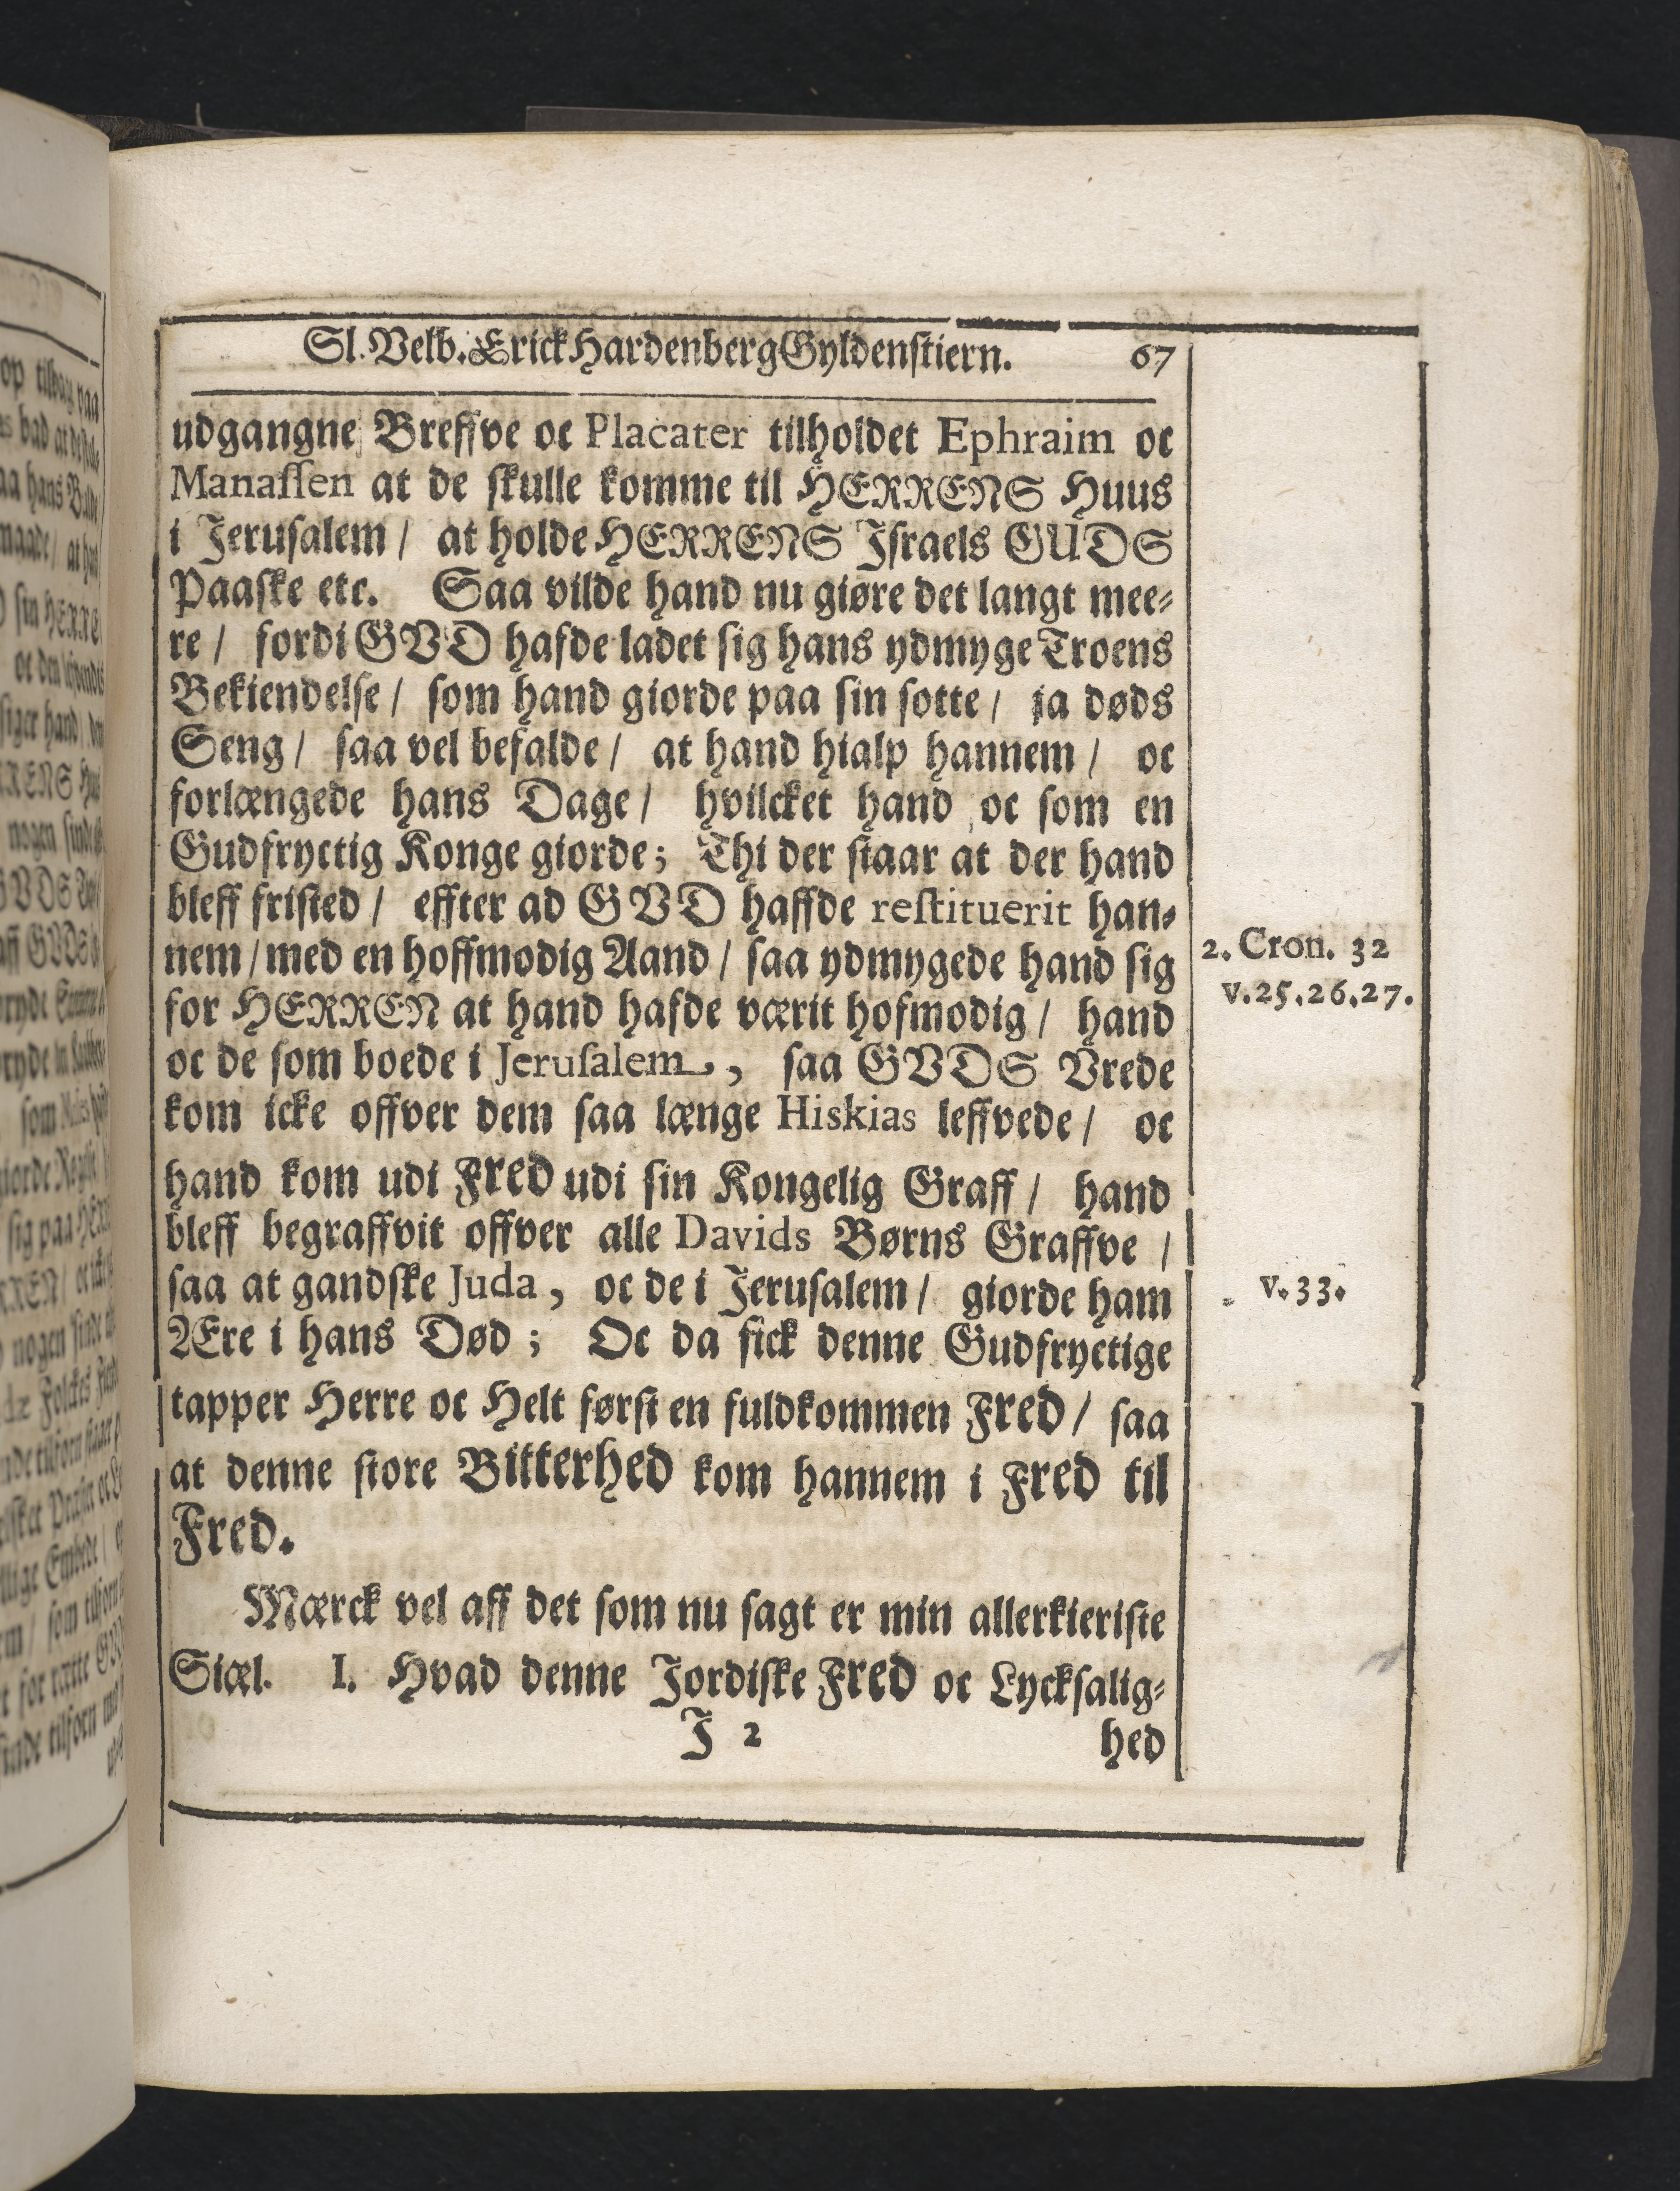 Sl. Velb. Erick Hardenberg Gyldenstiern. 67
udgangne Breffve oc Placater tilholdet Ephraim oc
Manassen at de skulle komme til HERRENS Huus
i Jerusalem / at holde HERRENS Israels GUDS
Paaske etc. Saa vilde hand nu giøre det langt mee-
re / fordi GVD hafde ladet sig hans ydmyge Troens
Bekiendelse / som hand giorde paa sin sotte / ja døds
Seng / saa vel befalde / at hand hialp hannem / oc
forlængede hans Dage / hvilcket hand oc som en
Gudfryctig Konge giorde; Thi der staar at der hand
bleff fristed / effter ad GVD haffde restituerit han-
nem / med en hoffmodig Aand / saa ydmygede hand sig
2. Cron. 32
for HERREN at hand hafde værit hofmodig / hand
v. 25. 26. 27.
oc de som boede i Jerusalem, saa GVDS Vrede
kom icke offver dem saa længe Hiskias leffvede / oc
hand kom udi Fred udi sin Kongelig Graff / hand
bleff begraffvit offver alle Davids Børns Graffve /
saa at gandske Juda, oc de i Jerusalem / giorde ham
v. 33.
Ære i hans Død; Oc da fick denne Gudfryctige
tapper Herre oc Helt først en fuldkommen Fred / saa
at denne store Bitterhed kom hannem i Fred til
Fred.
Mærck vel aff det som nu sagt er min allerkieriste
Siæl. I. Hvad denne Jordiske Fred oc Lycksalig-
J 2 hed